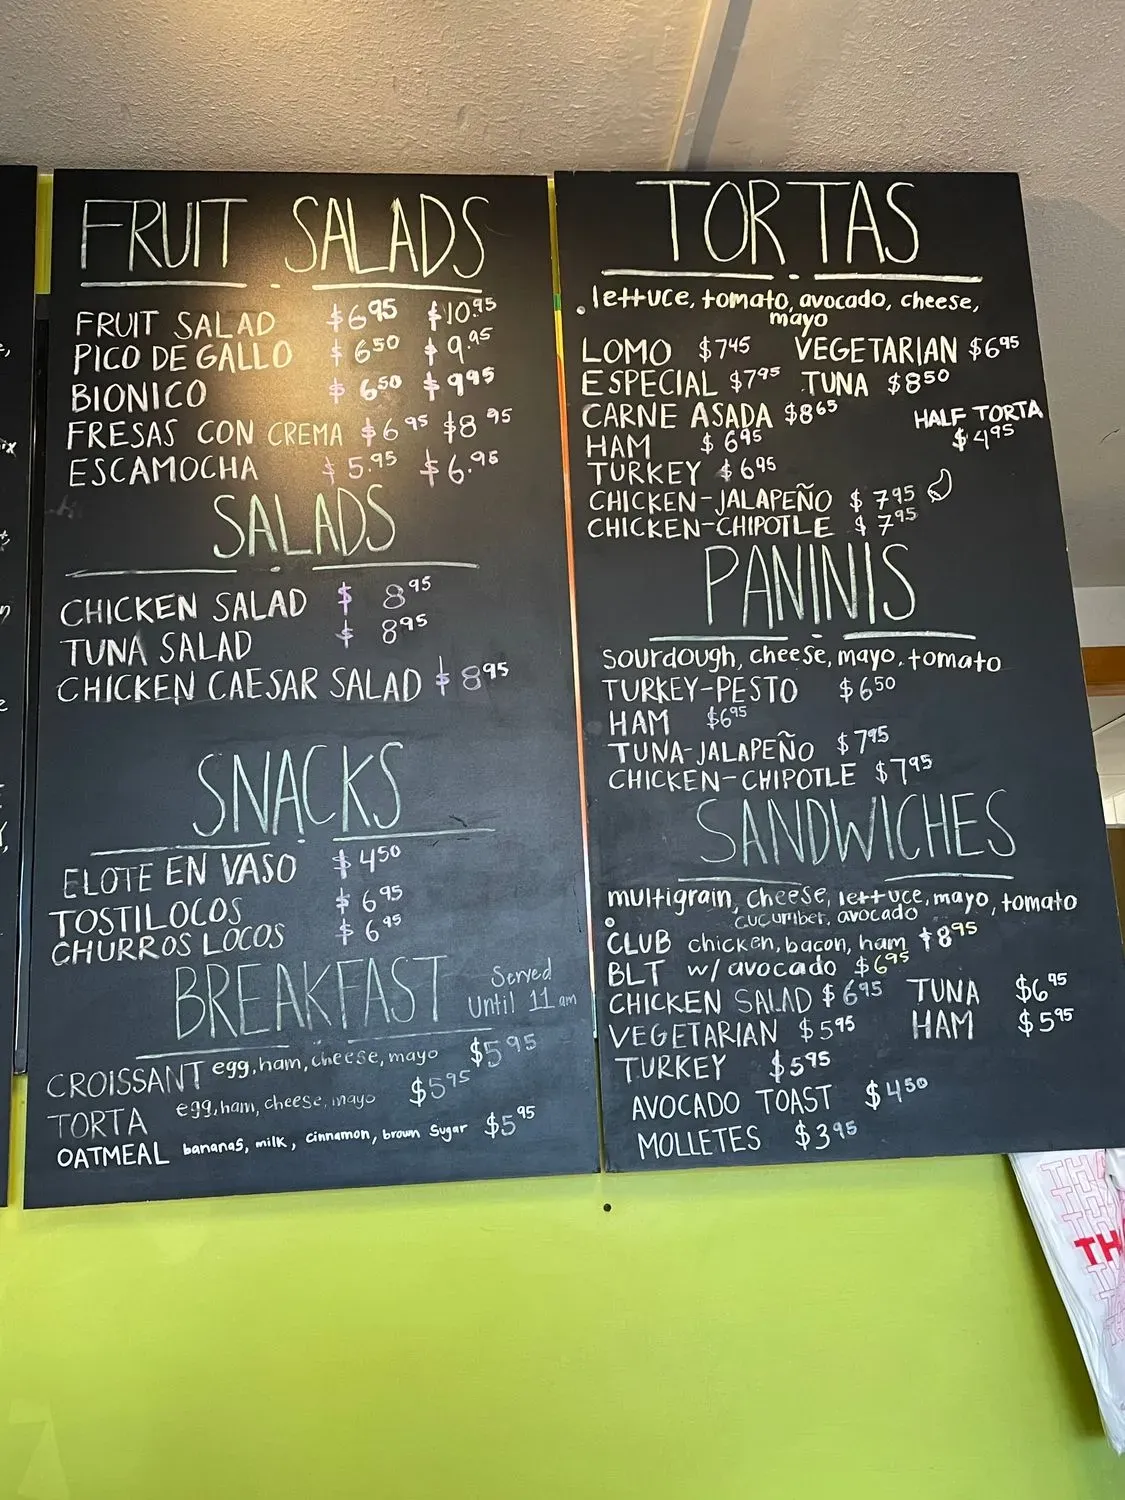 FRUIT SALADS
FRUIT SALAD $6.95 $10.95
PICO DE GALLO $6.50 $9.95
BIONICO $6.50 $9.95
FRESAS CON CREMA $6.95 $8.95
ESCAMOCHA $5.95 $6.95
SALADS
CHICKEN SALAD $8.95
TUNA SALAD $8.95
CHICKEN CAESAR SALAD $8.95
SNACKS
ELOTE EN VASO $4.50
TOSTILOCOS $6.95
CHURROS LOCOS $6.95
BREAKFAST Served Until 11 am
CROISSANT egg, ham, cheese, mayo $5.95
TORTA egg, ham, cheese, mayo $5.95
OATMEAL bananas, milk, cinnamon, brown sugar $5.95
TORTAS
lettuce, tomato, avocado, cheese,
mayo
LOMO $7.45 VEGETARIAN $6.95
ESPECIAL $7.95 TUNA $8.50
CARNE ASADA $8.65 HALF TORTA
HAM $6.95 $4.95
TURKEY $6.95
CHICKEN-JALAPEÑO $7.95
CHICKEN-CHIPOTLE $7.95
PANINIS
sourdough, cheese, mayo, tomato
TURKEY-PESTO $6.50
HAM $6.95
TUNA-JALAPEÑO $7.95
CHICKEN-CHIPOTLE $7.95
SANDWICHES
multigrain, cheese, lettuce, mayo, tomato
cucumber, avocado
CLUB chicken, bacon, ham $8.95
BLT w/ avocado $6.95
CHICKEN SALAD $6.95 TUNA $6.95
VEGETARIAN $5.95 HAM $5.95
TURKEY $5.95
AVOCADO TOAST $4.50
MOLLETES $3.95